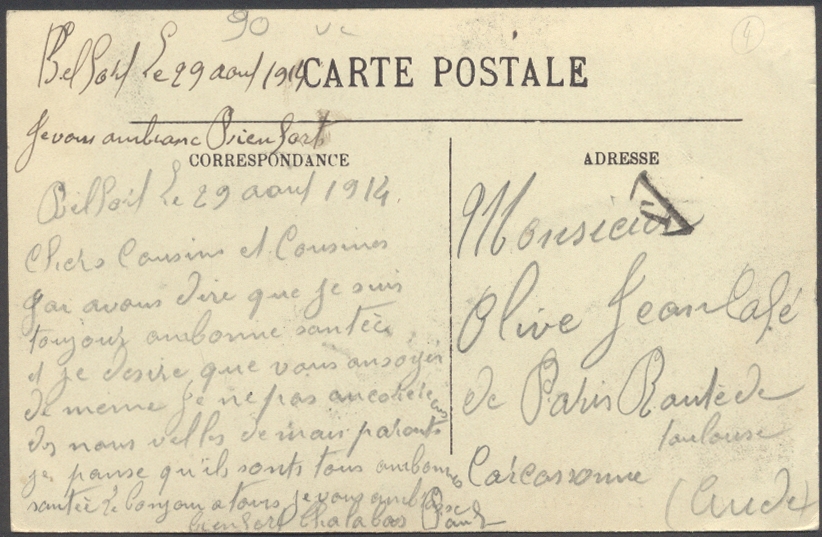 90
4
Belfort le 29 aout 1914
CARTE POSTALE
Je vous ambrasse Bien fort
CORRESPONDANCE
Belfort le 29 aout 1914.
Chers Cousins et Cousines
J'ai avous dire que je suis
toujour ambonne santée
et je desire que vous ansoyer
de meme Je ne pas ancore
des nous velles de mais parents
je panse qu'ils sonts tous ambonne
santée le bonjour a tous je vous
bien fort Chalabas Paul
ADRESSE
T
Monsieur
Olive Jean Café
de Paris Route de
toulouse
Carcassonne
(Aude)